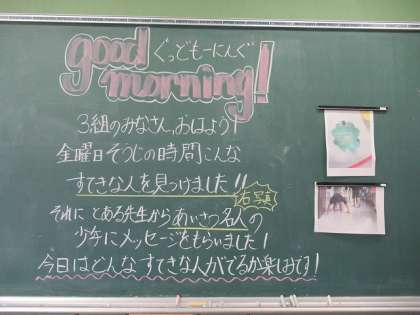 good ぐっどもーにんぐ
morning!
3組のみなさん、おはよう!
金曜日そうじの時間こんな
すてきな人を見つけました!!
右写真
それに とある先生から あいさつ名人の
少年にメッセージをもらいました!
今日はどんなすてきな人がでるか楽しみです!